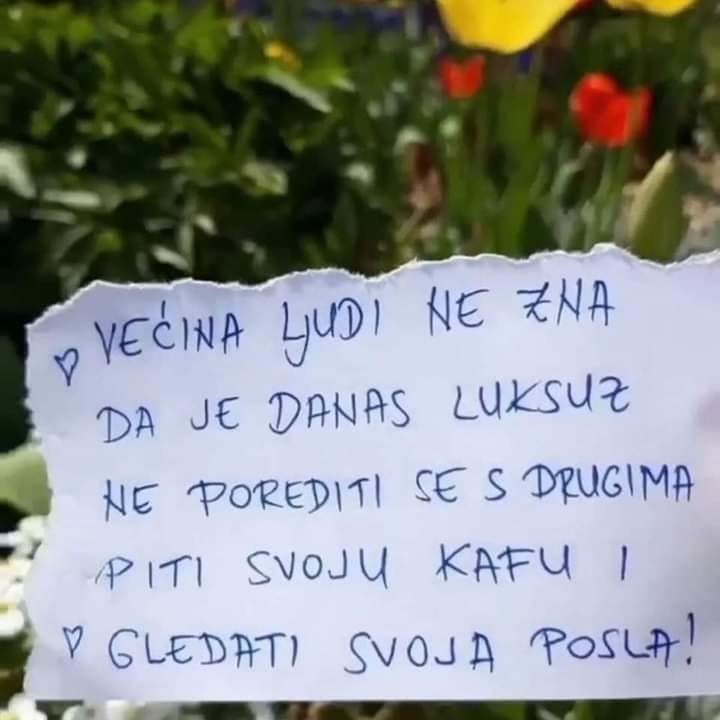 VEĆINA LJUDI NE ZNA
DA JE DANAS LUKSUZ
NE POREDITI SE S DRUGIMA
PITI SVOJU KAFU I
GLEDATI SVOJA POSLA!